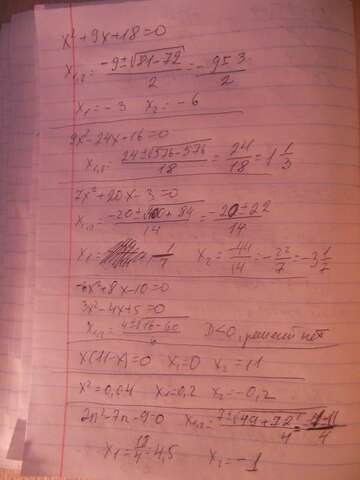 x² + 9x + 18 = 0
x₁,₂ = (-9 ± √(81 - 72))/2 = (-9 ± 3)/2
x₁ = -3 x₂ = -6
9x² - 24x + 16 = 0
x₁,₂ = (24 ± √(576 - 576))/18 = 24/18 = 1 1/3
7x² + 20x - 3 = 0
x₁,₂ = (-20 ± √(400 + 84))/14 = (-20 ± 22)/14
x₁ = 1/7 x₂ = -44/14 = -22/7 = -3 1/7
-6x² + 8x - 10 = 0
3x² - 4x + 5 = 0
x₁,₂ = (4 ± √(16 - 60))/6 D<0, решений нет
x(11 - x) = 0 x₁ = 0 x₂ = 11
x² = 0,04 x₁ = 0,2 x₂ = -0,2
2n² - 7n - 9 = 0 x₁,₂ = (7 ± √(49 + 72))/4 = (7 ± 11)/4
x₁ = 18/4 = 4,5 x₂ = -1